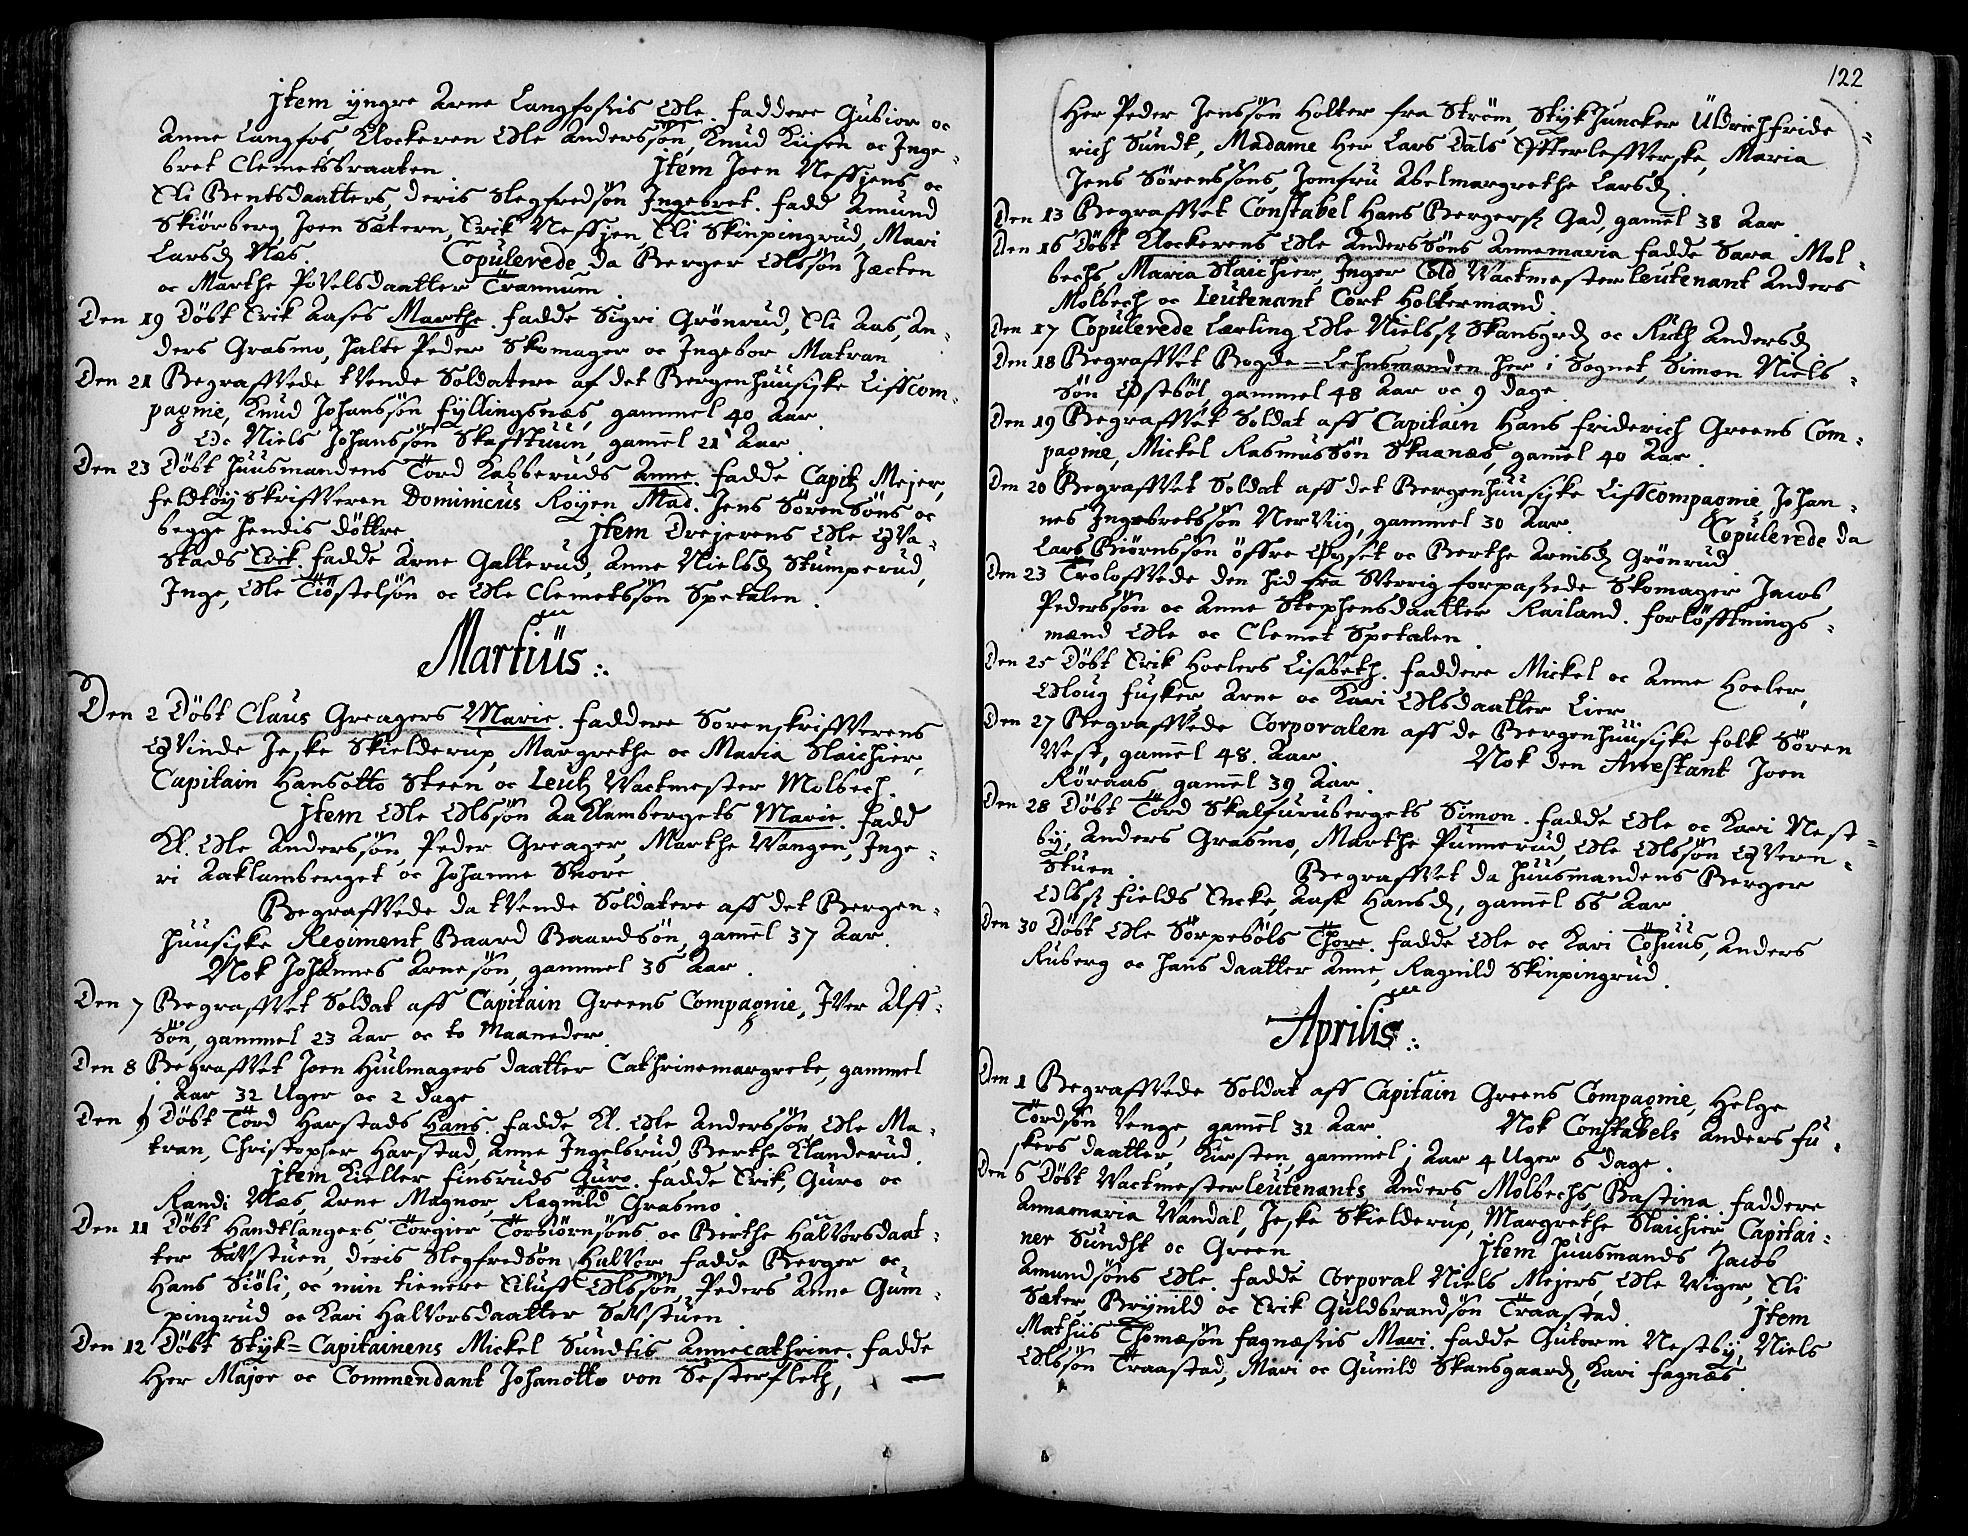 jtem yngre Arne Langfossis Ole. faddere Gubior oc
Anne Langfos, Klockeren Ole Anderssøn, Knud Kiisen oc Inge-
bret Clemetsbraaten. jtem Joen Neffjens oc
Eli Bentsdaatters, deris slegfredsøn Ingebret. fadd Amund
Skiørberg, Joen Sætern, Erik Neffjen, Eli Skinpingrud, Mari
Larsd Næs. Copulerede da Berger Olssøn Jæcten
oc Marthe Povelsdaatter Trannum.
Den 19 Døbt Erik Aases Marthe. fadde Sigri Grønrud, Eli Aas, An-
ders Grasmo, halte Peder Skomager oc Ingebor Matran
Den 21 Begraffvede tvende Soldatere af det Bergenhuusiske Liffcom-
pagnie, Knud Johanssøn Fyllingsnæs, gammel 40 Aar.
Oc Niels Johanssøn Skafftuun, gamel 21 Aar.
Den 23 Døbt huusmandens Tord Kabberuds Anne. fadde Capit Mejer,
feldtøyskriffveren Dominicus Royen Mad. Jens Sørensøns oc
begge hendis døttre. jtem Drejerens Ole Qva-
stads Erik. fadde Arne Galterud, Anne Nielsd Stumperud,
Inge, Ole Tiøstelsøn oc Ole Clemetssøn Spetalen.
Martius.
Den 2 Døbt Claus Greagers Marie. faddere Sorenskriffverens
Qvinde Jeske Skielderup, Margrethe oc Maria Slaichier,
Capitain Hansotto Steen oc Leut Vactmester Molbech.
jtem Ole Olssøn Aaklambergets Marie. fadd
Kl. Ole Anderssøn, Peder Greager, Marthe Vangen, Inge-
ri Aaklamberget oc Johanne Skore.
Begraffvede da tvende Soldatere aff det Bergen-
huusiske Regiment, Baard Baardsøn, gamel 37 Aar.
Nok Johannes Arnesøn, gammel 36 Aar.
Den 7 Begraffvet Soldat aff Capitain Greens Compagnie, Iver Alff-
søn, gammel 23 Aar oc to Maaneder.
Den 8 Begraffvet Joen Huulmagers daatter Cathrinemargrete, gammel
1 Aar 32 Uger oc 2 dage
Den 9 Døbt Tord Harstads Hans. fadde Kl. Ole Anderssøn, Ole Ma-
tran, Christopher Harstad, Anne Ingelsrud, Berthe Klanderud.
jtem Kieller Finsruds Guro. fadde Erik, Guro oc
Randi Næs, Arne Magnor, Ragnild Grasmo.
Den 11 Døbt Handtlangers, Torgier Torbiørnsøns oc Berthe Halvorsdaat-
ter Savstuen, deris slegfredsøn Halvor. fadde Berger oc
Hans Siøli, oc min tienere Eluff Olssøn, Peders Anne Gum-
pingrud oc Kari Halvorsdaatter Savstuen.
Den 12 Døbt Styk=Capitainens Mickel Sundtis Annecathrine. fadde
Her Major oc Commendant Johanotto von Sesterfleth,
122
Her Peder Jenssøn Holter fra Strøm, Stykjuncker Uldrichfride-
rich Sundt, Madame Her Lars Dals Effterleffverske, Maria
Jens Sørenssøns, Jomfru Abelmargrethe Larsd.
Den 13 Begraffvet Constabel Hans Bergers Gad, gamel 38 Aar
Den 16 Døbt Klockerens Ole Anderssøns Annemaria fadde Sara Mol-
bechs, Maria Slaichier, Inger Cold, Vactmesterleutenant Anders
Molbech oc Leutenant Cort Holtermand.
Den 17 Copulerede Lærling Ole Niels Skansgrd oc Ruth Andersd
Den 18 Begraffvet Bogde=Lehnsmanden her i Sognet, Simon Niels-
søn Østebøl, gammel 48 Aar oc 9 dage
Den 19 Begraffvet Soldat aff Capitain Hans Friderich Greens Com-
pagnie, Mickel Rasmussøn Skaanæs, gamel 40 Aar.
Den 20 Begraffvet Soldat aff det Bergenhuusiske Liffcompagnie, Johan-
nes Ingebretssøn Nerviig, gammel 30 Aar. Copulerede da
Lars Biørnssøn øffre Øyset oc Berthe Arnisd Grønrud
Den 23 Troloffvede den hid fra Sverrig forpassede Skomager Jacob
Pederssøn oc Anne Stephensdaatter Railand. Forløfftnings-
mænd Ole oc Clemet Spetalen.
Den 25 Døbt Erik Hoelers Lisabeth. faddere Mickel oc Anne Hoeler,
Oloug Fusker, Arne oc Kari Olsdaatter Lier
Den 27 Begraffvede Corporalen aff de Bergenhuusiske folk Søren
West, gamel 48. Aar. Nok den Arrestant Joen
Røraas gamel 39 Aar.
Den 28 Døbt Tord Skalfurubergets Simon. fadde Ole oc Kari Nest-
by, Anders Grasmo, Marthe Punnerud, Ole Olssøn Qvern-
stuen. Begraffvet da huusmandens Berger
Ols Fields Encke, Aase Hansd, gamel 66 Aar.
Den 30 Døbt Ole Sørpebøls Thore. fadde Ole oc Kari Tøhuus, Anders
Ruberg oc hans daatter Anne, Ragnild Skinpingrud.
Aprilis.
Den 1 Begraffvede Soldat aff Capitain Greens Compagnie, Helge
Tordsøn Venge, gamel 31 Aar. Nok Constabels Anders Fu-
skers daatter, Kirsten, gammel 1 Aar 4 Uger 6 dage.
Den 6 Døbt Vactmesterleutenants Anders Molbechs, Bastina. faddere
Annamaria Vandal, Jeske Skielderup, Margrethe Slaichier, Capitai-
ner Sundt oc Green jtem huusmands Jacob
Amundsøns Ole. fadde Corporal Niels Mejers, Ole Viger, Eli
Sæter, Brynild oc Erik Guldbrandsøn Traastad. jtem
Mathis Thomæsøn Fagnæssis Mari. fadde Gutorm Nestby, Niels
Olssøn Traastad, Mari oc Gunild Skansgaard, Kari Fagnæs.